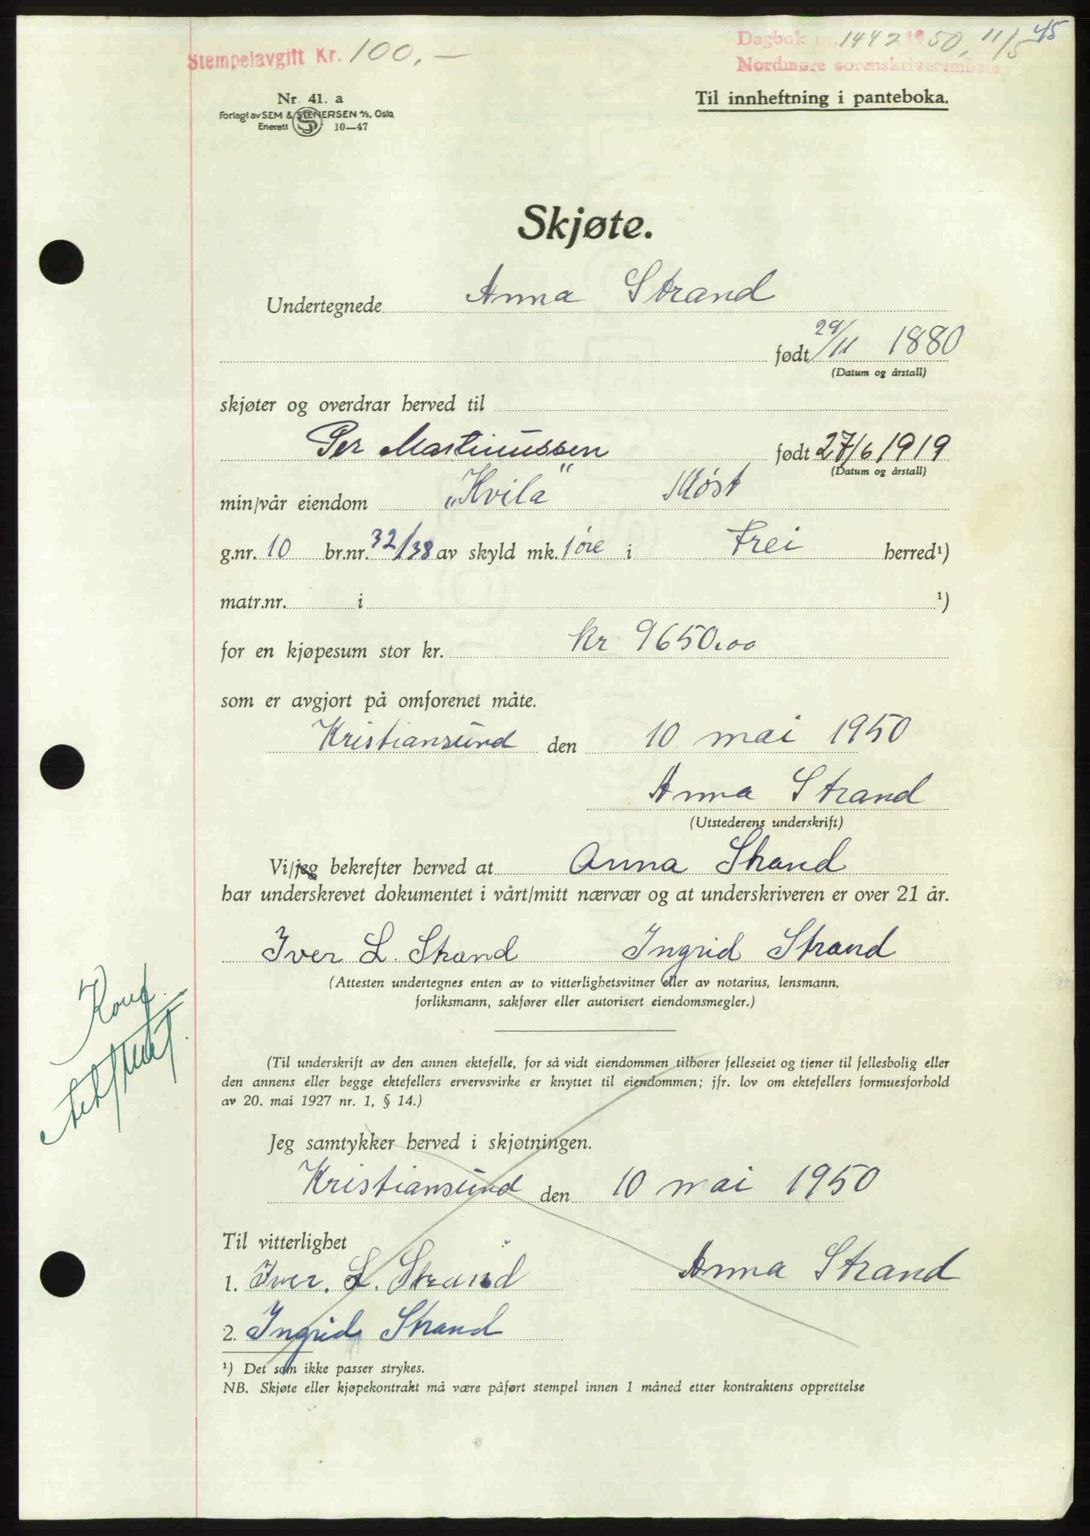 45
Stempelavgift Kr. 100,-
Dagbok nr. 1442 1950, 11/5
Nordmøre sorenskriverembete
Nr. 41. a
Forlagt av SEM & STENERSEN A/S, Oslo
Enerett 10—47
Til innheftning i panteboka.
Skjøte.
Undertegnede Anna Strand
født 29/11 1880
(Datum og årstall)
skjøter og overdrar herved til
Per Martinussen født 27/6 1919
(Datum og årstall)
min/vår eiendom „Kvila"
g.nr. 10 br.nr. 32/38 av skyld mk. 1 øre i Frei herred¹)
matr.nr. i ¹)
for en kjøpesum stor kr. kr 9650,00
som er avgjort på omforenet måte.
Kristiansund den 10 mai 1950
Anna Strand
(Utstederens underskrift)
Vi/jeg bekrefter herved at Anna Strand
har underskrevet dokumentet i vårt/mitt nærvær og at underskriveren er over 21 år.
Iver L. Strand Ingrid Strand
(Attesten undertegnes enten av to vitterlighetsvitner eller av notarius, lensmann,
forliksmann, sakfører eller autorisert eiendomsmegler.)
Konf.
(Til underskrift av den annen ektefelle, for så vidt eiendommen tilhører felleseiet og tjener til fellesbolig eller
den annens eller begge ektefellers ervervsvirke er knyttet til eiendommen; jfr. lov om ektefellers formuesforhold
av 20. mai 1927 nr. 1, § 14.)
Jeg samtykker herved i skjøtningen.
Kristiansund den 10 mai 1950
Til vitterlighet
1. Iver. L. Strand Anna Strand
2. Ingrid Strand
¹) Det som ikke passer strykes.
NB. Skjøte eller kjøpekontrakt må være påført stempel innen 1 måned etter kontraktens opprettelse